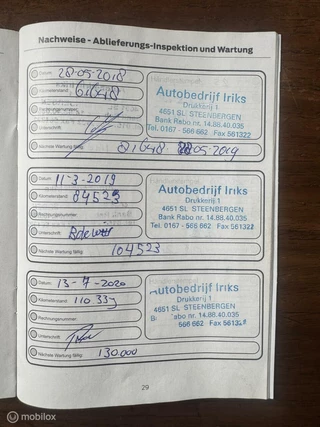 Nachweise - Ablieferungs-Inspektion und Wartung
Datum: 28-05-2018
Kilometerstand: 61648
Rechnungsnummer:
Unterschrift:
Nächste Wartung fällig: 81648 28-05-2019
Autobedrijf Iriks
Drukkerij 1
4651 SL STEENBERGEN
Bank Rabo nr. 14.88.40.035
Tel. 0167 - 566 662 Fax 561322
Datum: 11-3-2019
Kilometerstand: 84523
Rechnungsnummer:
Unterschrift:
Nächste Wartung fällig: 104523
Autobedrijf Iriks
Drukkerij 1
4651 SL STEENBERGEN
Bank Rabo nr. 14.88.40.035
Tel. 0167 - 566 662 Fax 561322
Datum: 13-7-2020
Kilometerstand: 110 339
Rechnungsnummer:
Unterschrift:
Nächste Wartung fällig: 130.000
utobedrijf Iriks
Drukkerij 1
4651 SL STEENBERGEN
B abo nr. 14.88.40.035
566 662 Fax 56132
29
© mobilox